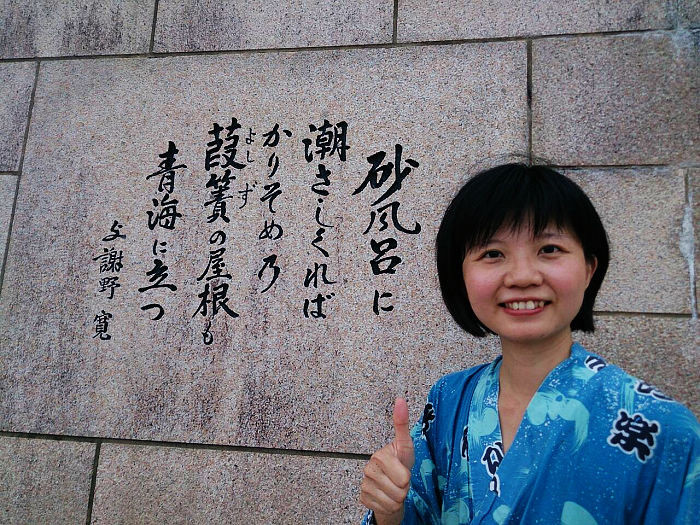 砂風呂に
潮さしくれば
かりそめの
葭簀の屋根も
よしず
青海に立つ
与謝野 寛